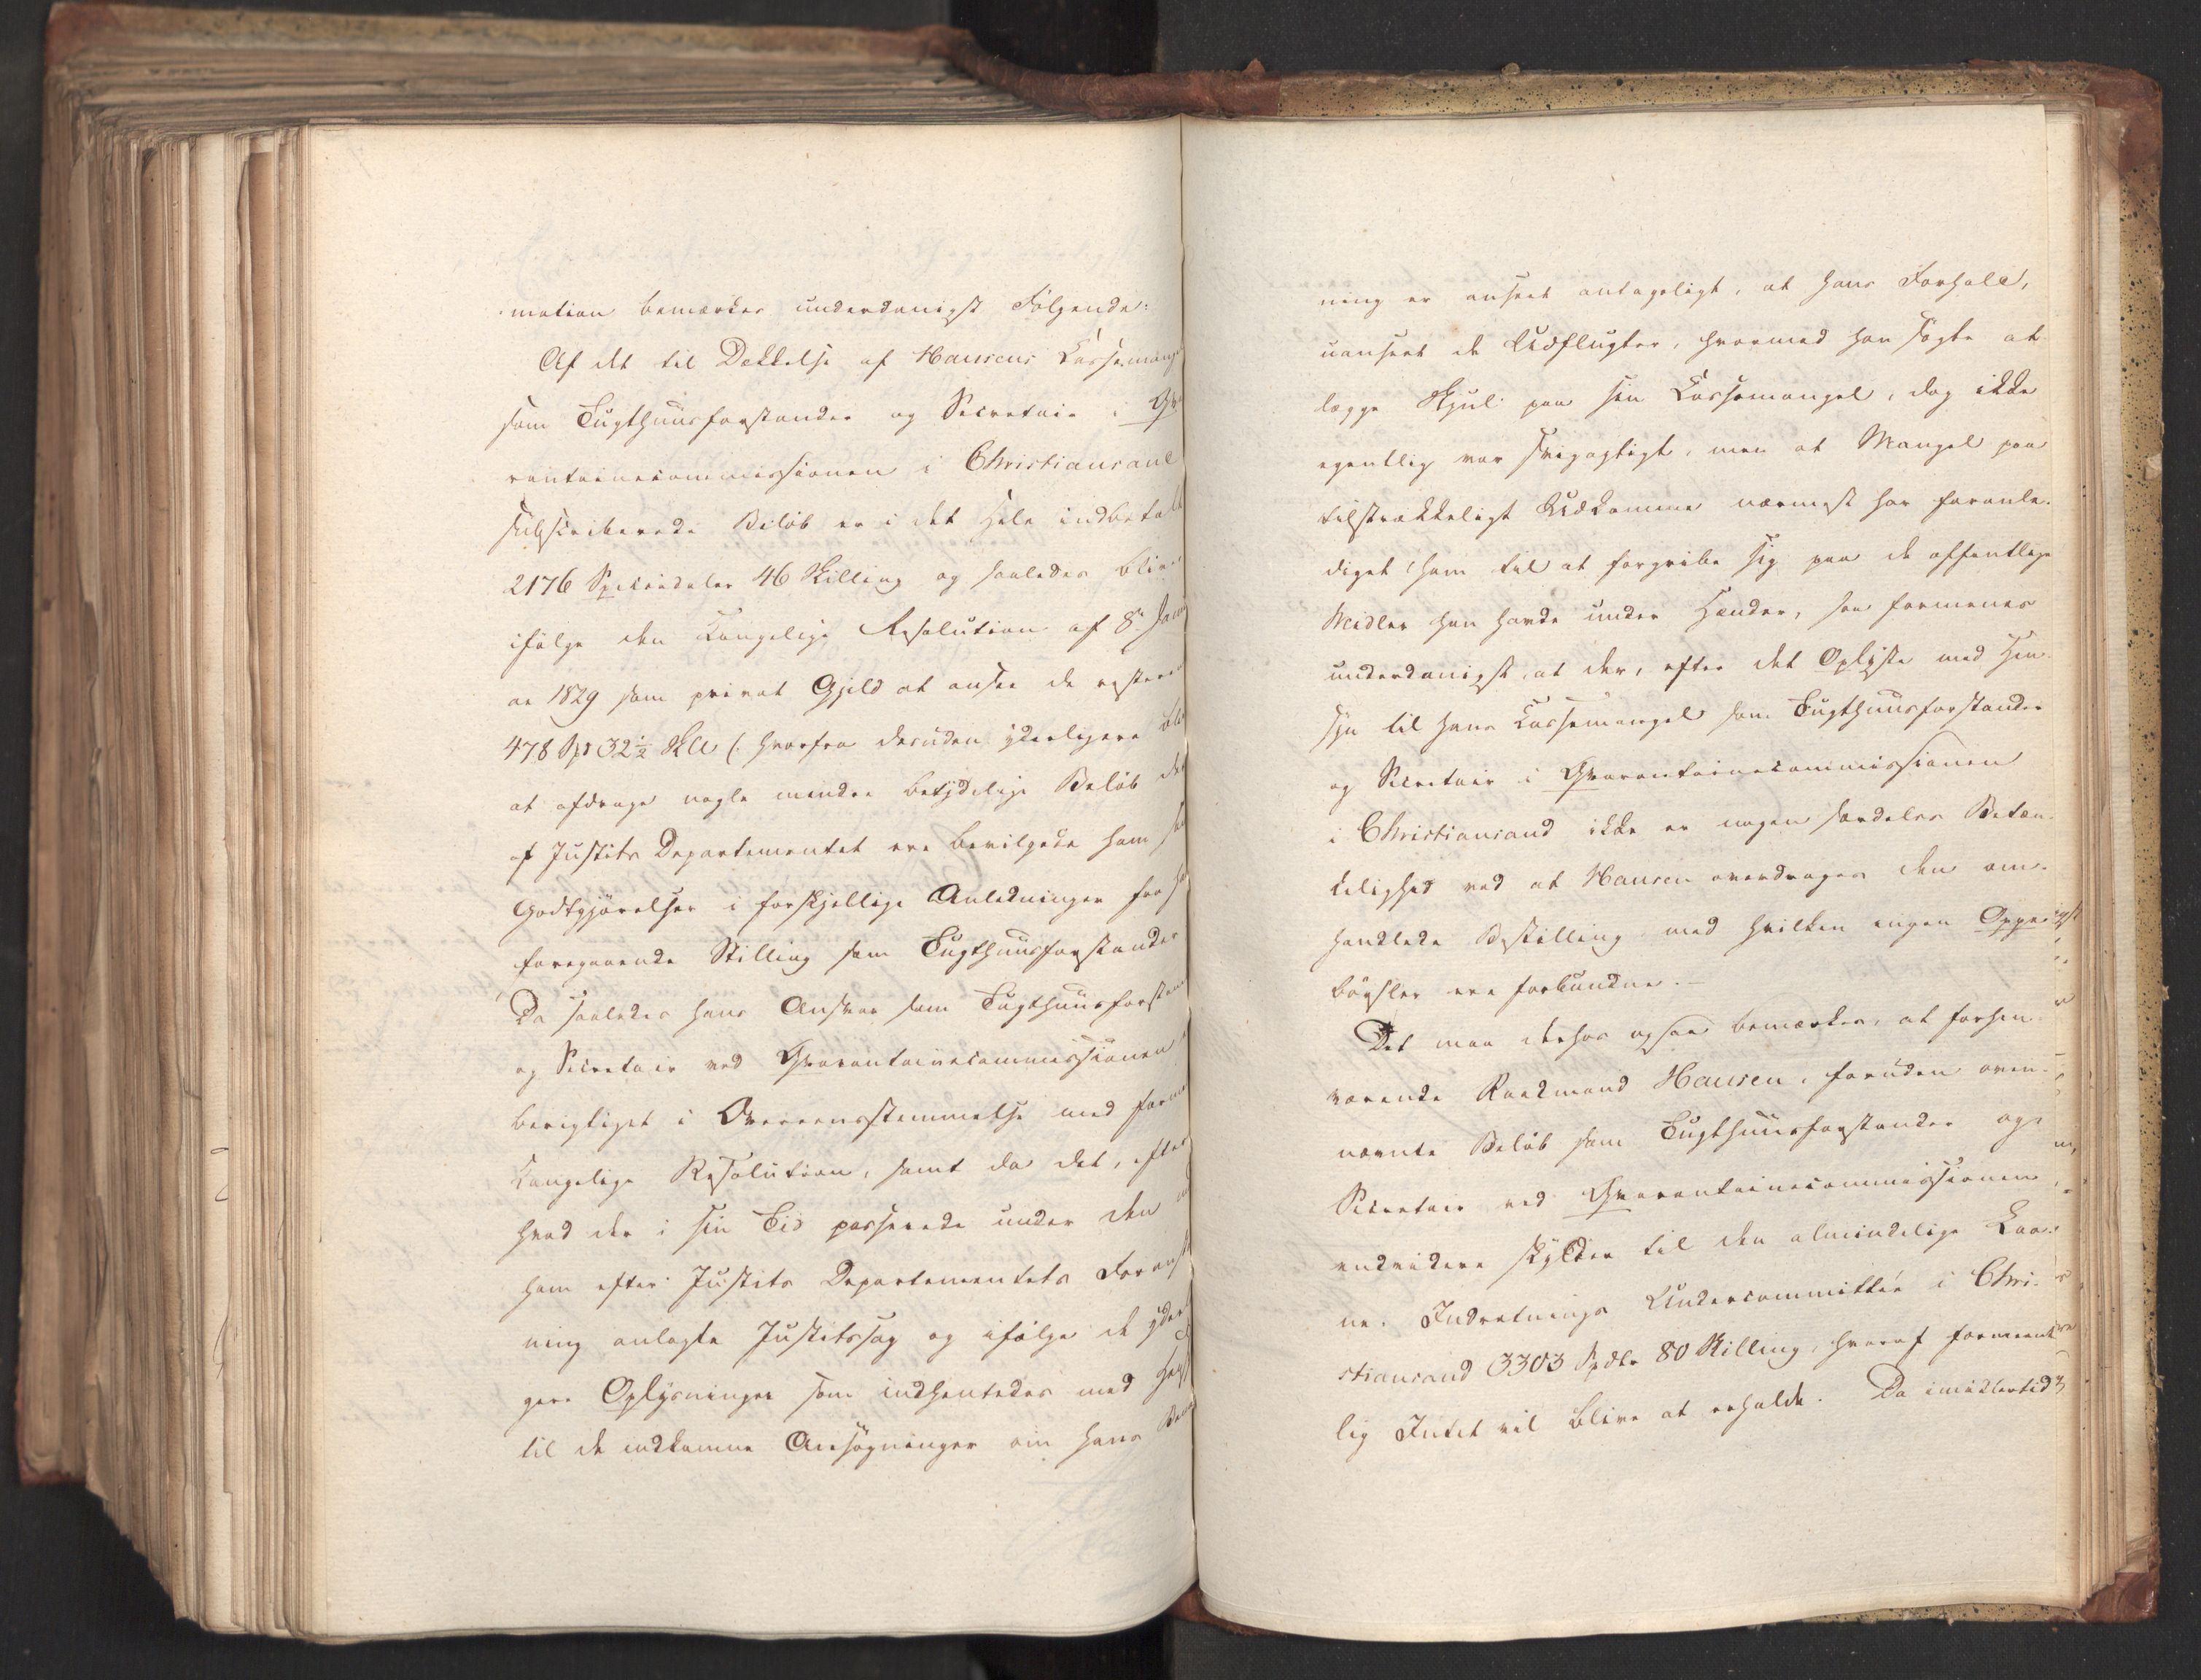 mation bemærkes underdanigst Følgende:
Af det til Dækkelse af Hansens Kassemang
som Tugthuusforstander og Secretair i Qva
rantainecommissionen i Christiansand
subscriberede Beløb er i det Hele indbetalt
2176 Speciedaler 46 Skilling og saaledes bliver
ifølge den Kongelige Resolution af 8de Janu
ar 1829 som privat Gjeld at ansee de resteren
478 Spd 32½ Skll (: hvorfra desuden yderligere
at afdrage nogle mindre betydelige Beløb
af Justits Departementet ere bevilgede ham
Godtgjørelser i forskjellige Anledninger for
foregaaende Stilling som Tugthuusforstander
Da saaledes hans Ansvar som Tugthuusforstan
og Secretair ved Qvarantainecommissionen
berigtiget i Overeensstemmelse med
Kongelige Resolution, samt da det, efter
hvad der i sin Tid passerede under den
ham efter Justits Departementets Foranst
ning anlagte Justitssag og ifølge de yder
gere Oplysninger som indhentedes med
til de indkomne Ansøgninger om hans
ning er anseet antageligt, at hans Forhold,
uanseet de Udflugter, hvormed han søgte at
lægge Skjul paa sin Kassemangel, dog ikke
egentlig var svigagtigt, men at Mangel paa
tilstrækkeligt Udkomme nærmest har foranle-
diget ham til at forgribe sig paa de offentlige
Midler han havde under Hænder, saa formenes
underdanigst, at der, efter det Oplyste med Hen-
syn til hans Kassemangel som Tugthuusforstander
og Secretair i Qvarantainecommissionen
i Christiansand ikke er nogen særdeles Betæn-
kelighed ved at Hansen overdrages den om-
handlede Bestilling med hvilken ingen Oppe-
børsler ere forbundne. –
Det maa derhos ogsaa bemærkes, at forhen-
værende Raadmand Hansen, foruden oven-
nævnte Beløb som Tugthuusforstander og
Secretair ved Qvarantainecommissionen,
endvidere skylder til den almindelige Laa-
ne-Indretnings Undercommittée i Chri-
stiansand 3303 Spdlr 80 Skilling, hvoraf formeent-
lig Intet vil blive at erholde. Da imidlertid